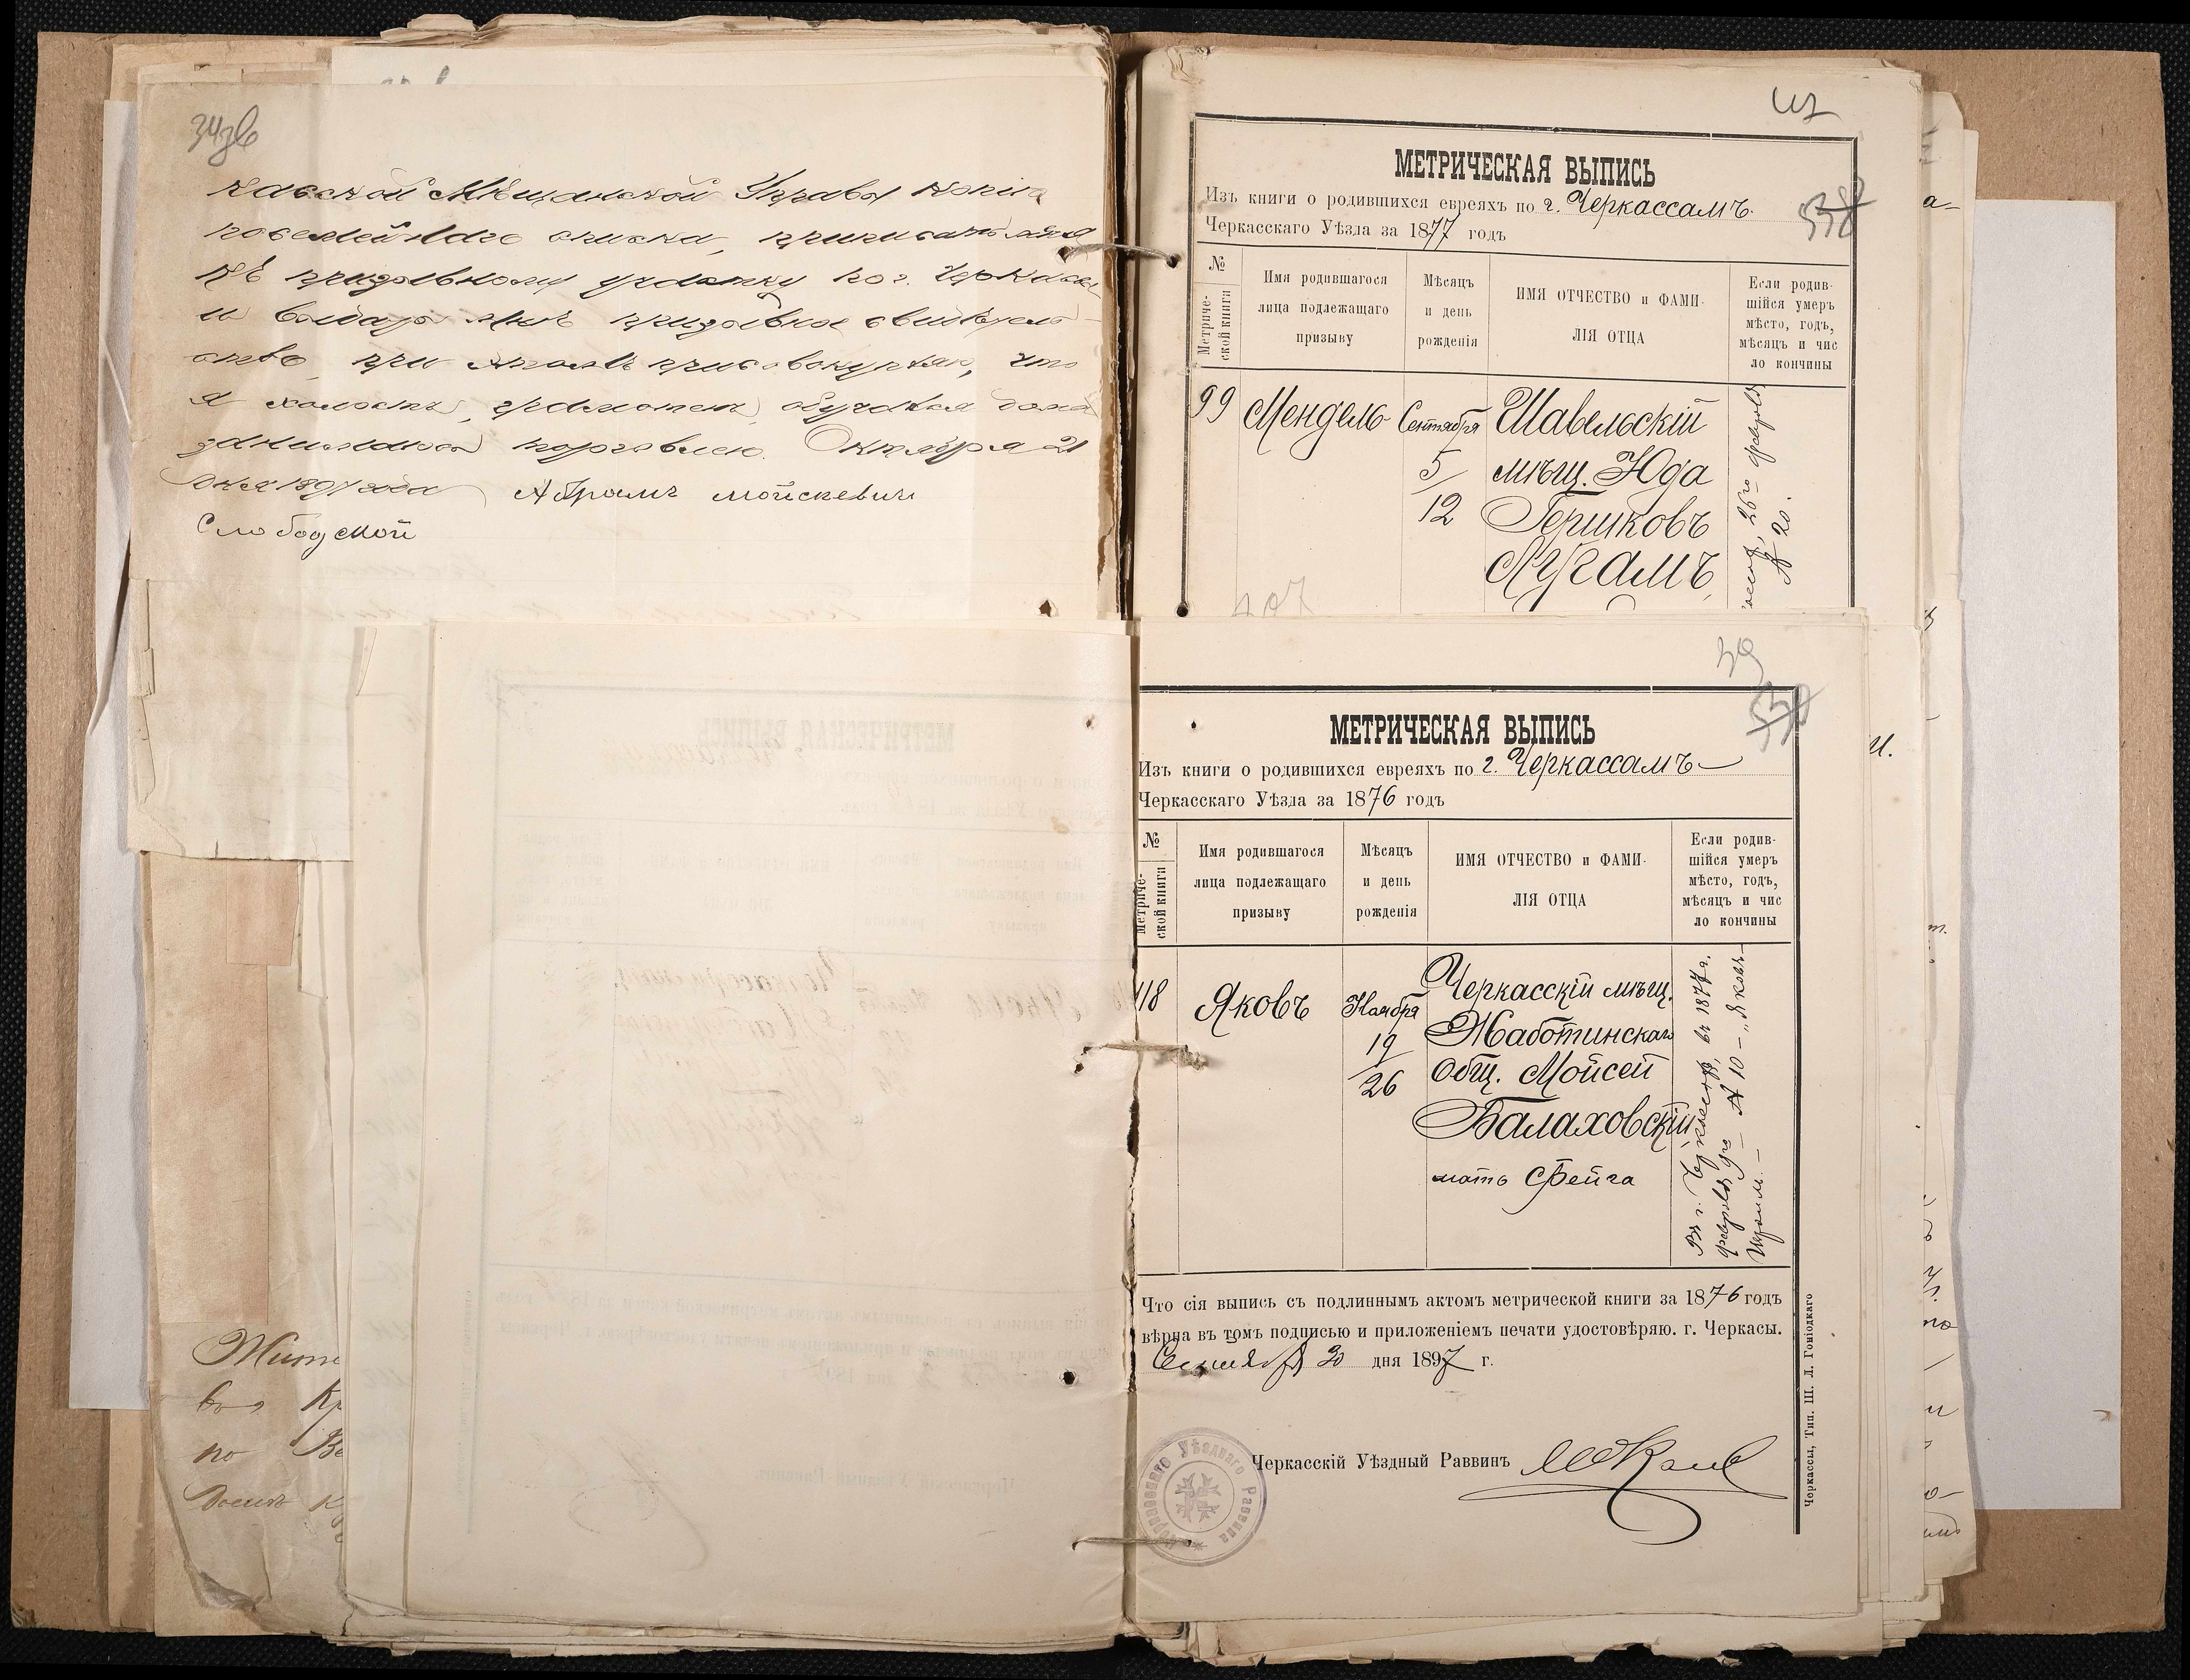 34зв
касской Мѣщанской Управы копію
посемейнаго списка, приписать меня
къ призывному участку по г. Черкасы
и выдать мнѣ призывное свидѣтель-
ство, при этомъ присовокупляю, что
я холостъ, грамотенъ, обучался дома
занимаюсь торговлею. Октября 21
дня 1897 года Абрамъ Мойсеевичъ
Слободской
МЕТРИЧЕСКАЯ ВЫПИСЬ
Изъ книги о родившихся евреяхъ по г. Черкассамъ.
538
Черкасскаго Уѣзда за 1877 годъ
№ Метриче-
ской книги
Имя родившагося
лица подлежащаго
призыву
Мѣсяцъ
и день
рожденія
ИМЯ ОТЧЕСТВО и ФАМИ-
ЛІЯ ОТЦА
Если родив-
шійся умеръ
мѣсто, годъ,
мѣсяцъ и чис
ло кончины
99
Мендель
Сентября
5/
12
Шавельскій
мѣщ. Юда
Гершковъ
Лугамъ
26го февраля
№ 20.
407
39
МЕТРИЧЕСКАЯ ВЫПИСЬ
Изъ книги о родившихся евреяхъ по г. Черкассамъ
Черкасскаго Уѣзда за 1876 годъ
№ Метриче-
ской книги
Имя родившагося
лица подлежащаго
призыву
Мѣсяцъ
и день
рожденія
ИМЯ ОТЧЕСТВО и ФАМИ-
ЛІЯ ОТЦА
Если родив-
шійся умеръ
мѣсто, годъ,
мѣсяцъ и чис
ло кончины
118
Яковъ
Ноября
19
/
26
Черкасскій мѣщ.
Жаботинскаго
общ. Мойсей
Балаховскій
мать Фейга
Въ г. Черкассахъ, въ 1877 г.
февраля 9го № 10 – „Яковъ
Что сія выпись съ подлиннымъ актомъ метрической книги за 1876 годъ
вѣрна въ томъ подписью и приложеніемъ печати удостовѣряю. г. Черкасы.
Сентября 30 дня 1897 г.
Черкасскій Уѣздный Раввинъ
Черкасскаго Уѣзднаго Раввина
Черкассы, Тип. Ш. Л. Гоніодкаго